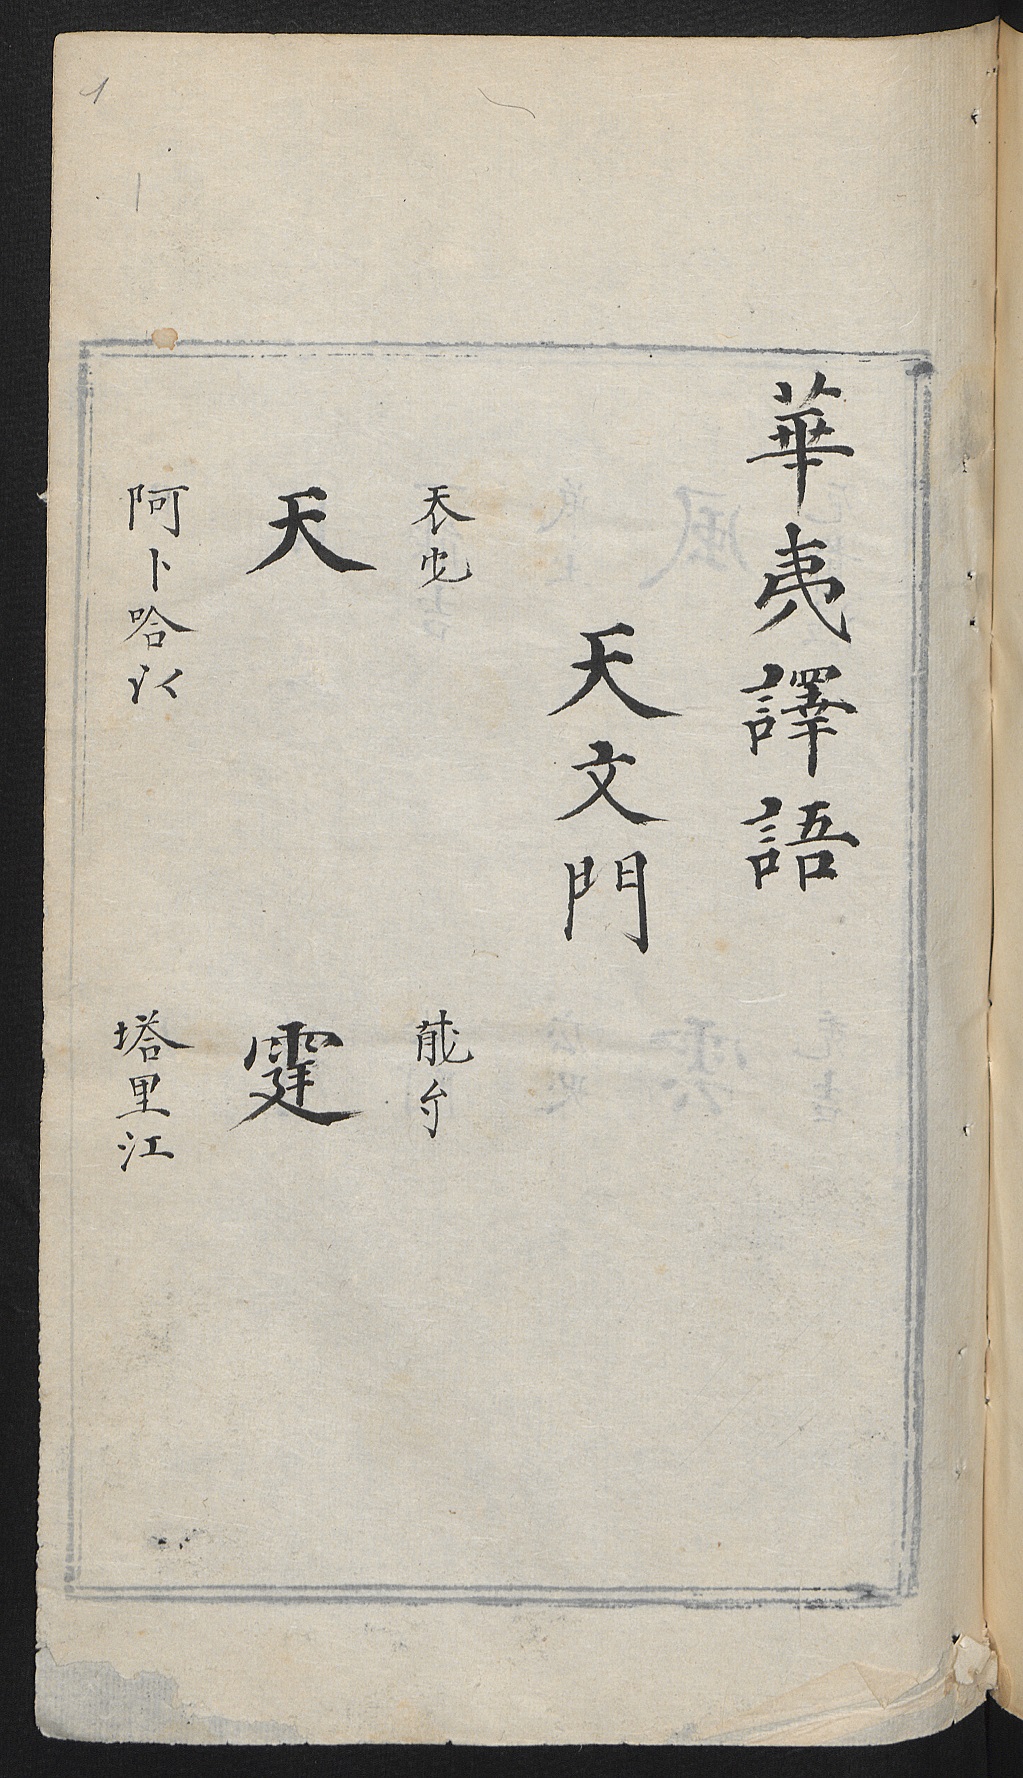 華夷譯語
天文門
天
阿卜哈以
霆
塔里江
1